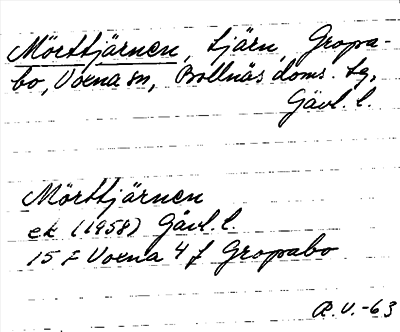 Mörttjärnen, tjärn, Gropa-
bo, Voxna sn, Bollnäs doms. tg,
Gävl. l.
Mörttjärnen
ek (1958) Gävl. l.
15 F Voxna 4 f Gropabo
R.V.-63